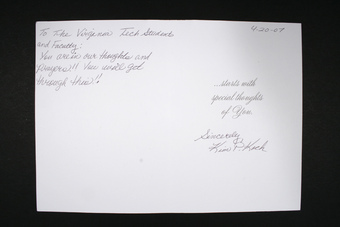 To The Virginia Tech Students
and Faculty:
You are in our thoughts and
prayers!! You will get
through this!!
4-20-07
...starts with
special thoughts
of You.
Sincerely,
Kim P. Koch